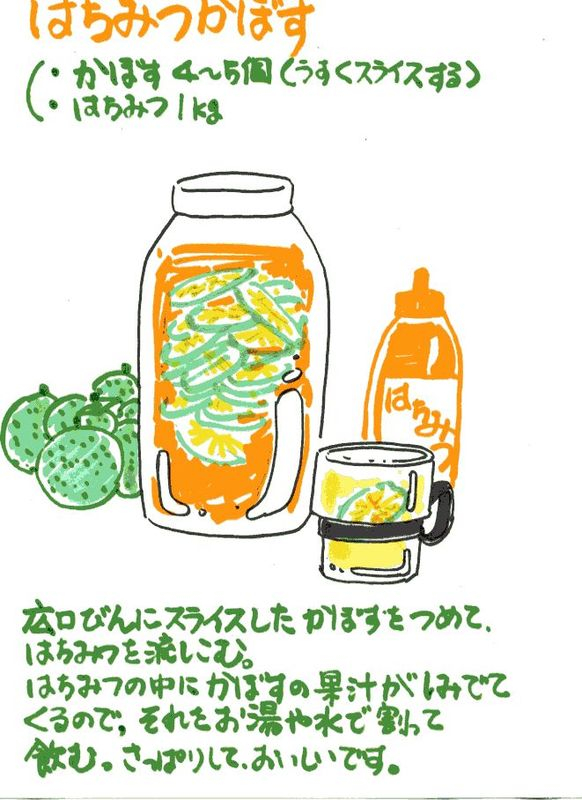 はちみつかぼす
・かぼす 4〜5個(うすくスライスする)
・はちみつ 1kg
はちみつ
広口びんにスライスしたかぼすをつめて、
はちみつを流しこむ。
はちみつの中にかぼすの果汁がしみでて
くるので、それをお湯や水で割って
飲む。さっぱりして、おいしいです。